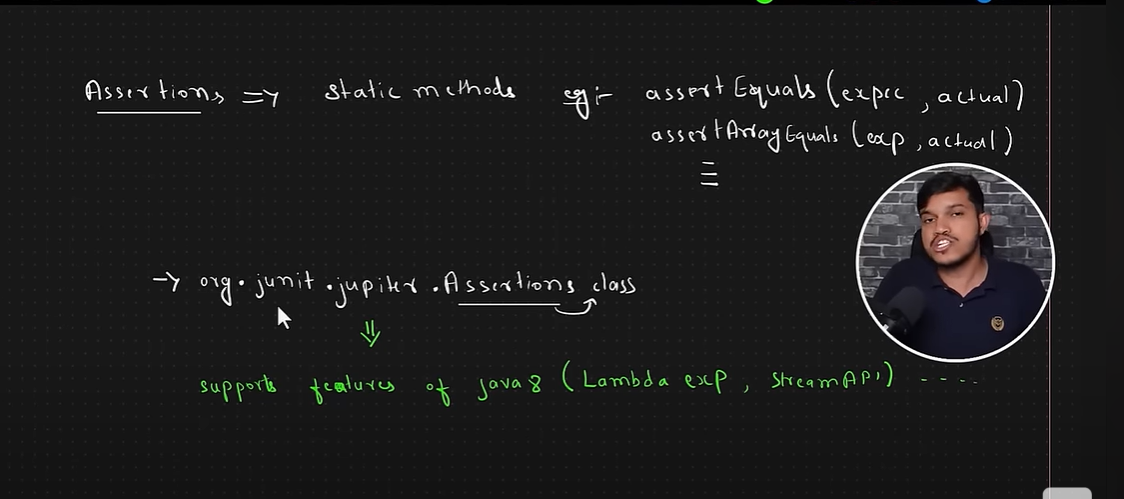 Assertions => static methods eg:- assertEquals(expec, actual)
assertArrayEquals(exp, actual)
-> org.junit.jupiter.Assertions class
supports features of java8 (Lambda exp, streamAPI) ----